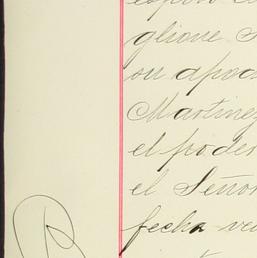 glione
su apod
Martinez
el poder
el Señor
fecha ve